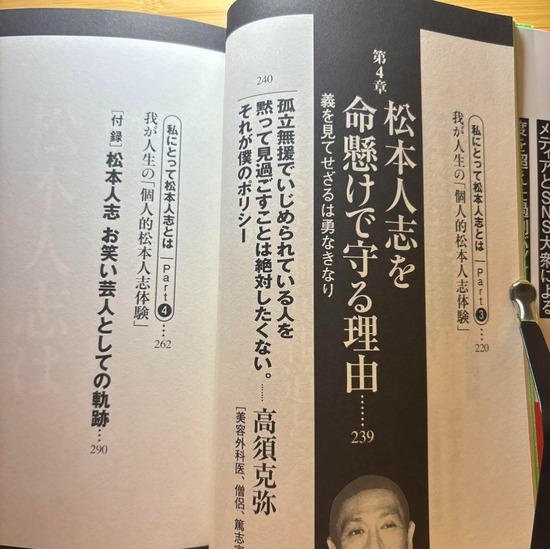 メディアとSNS大衆による
私にとって松本人志とは Part 3
我が人生の「個人的松本人志体験」…… 220
第4章
松本人志を
命懸けで守る理由…… 239
義を見てせざるは勇なきなり
240
孤立無援でいじめられている人を
黙って見過ごすことは絶対したくない。
それが僕のポリシー
……高須克弥
[美容外科医、僧侶、篤志家
私にとって松本人志とは Part 4
我が人生の「個人的松本人志体験」…… 262
[付録] 松本人志 お笑い芸人としての軌跡… 290